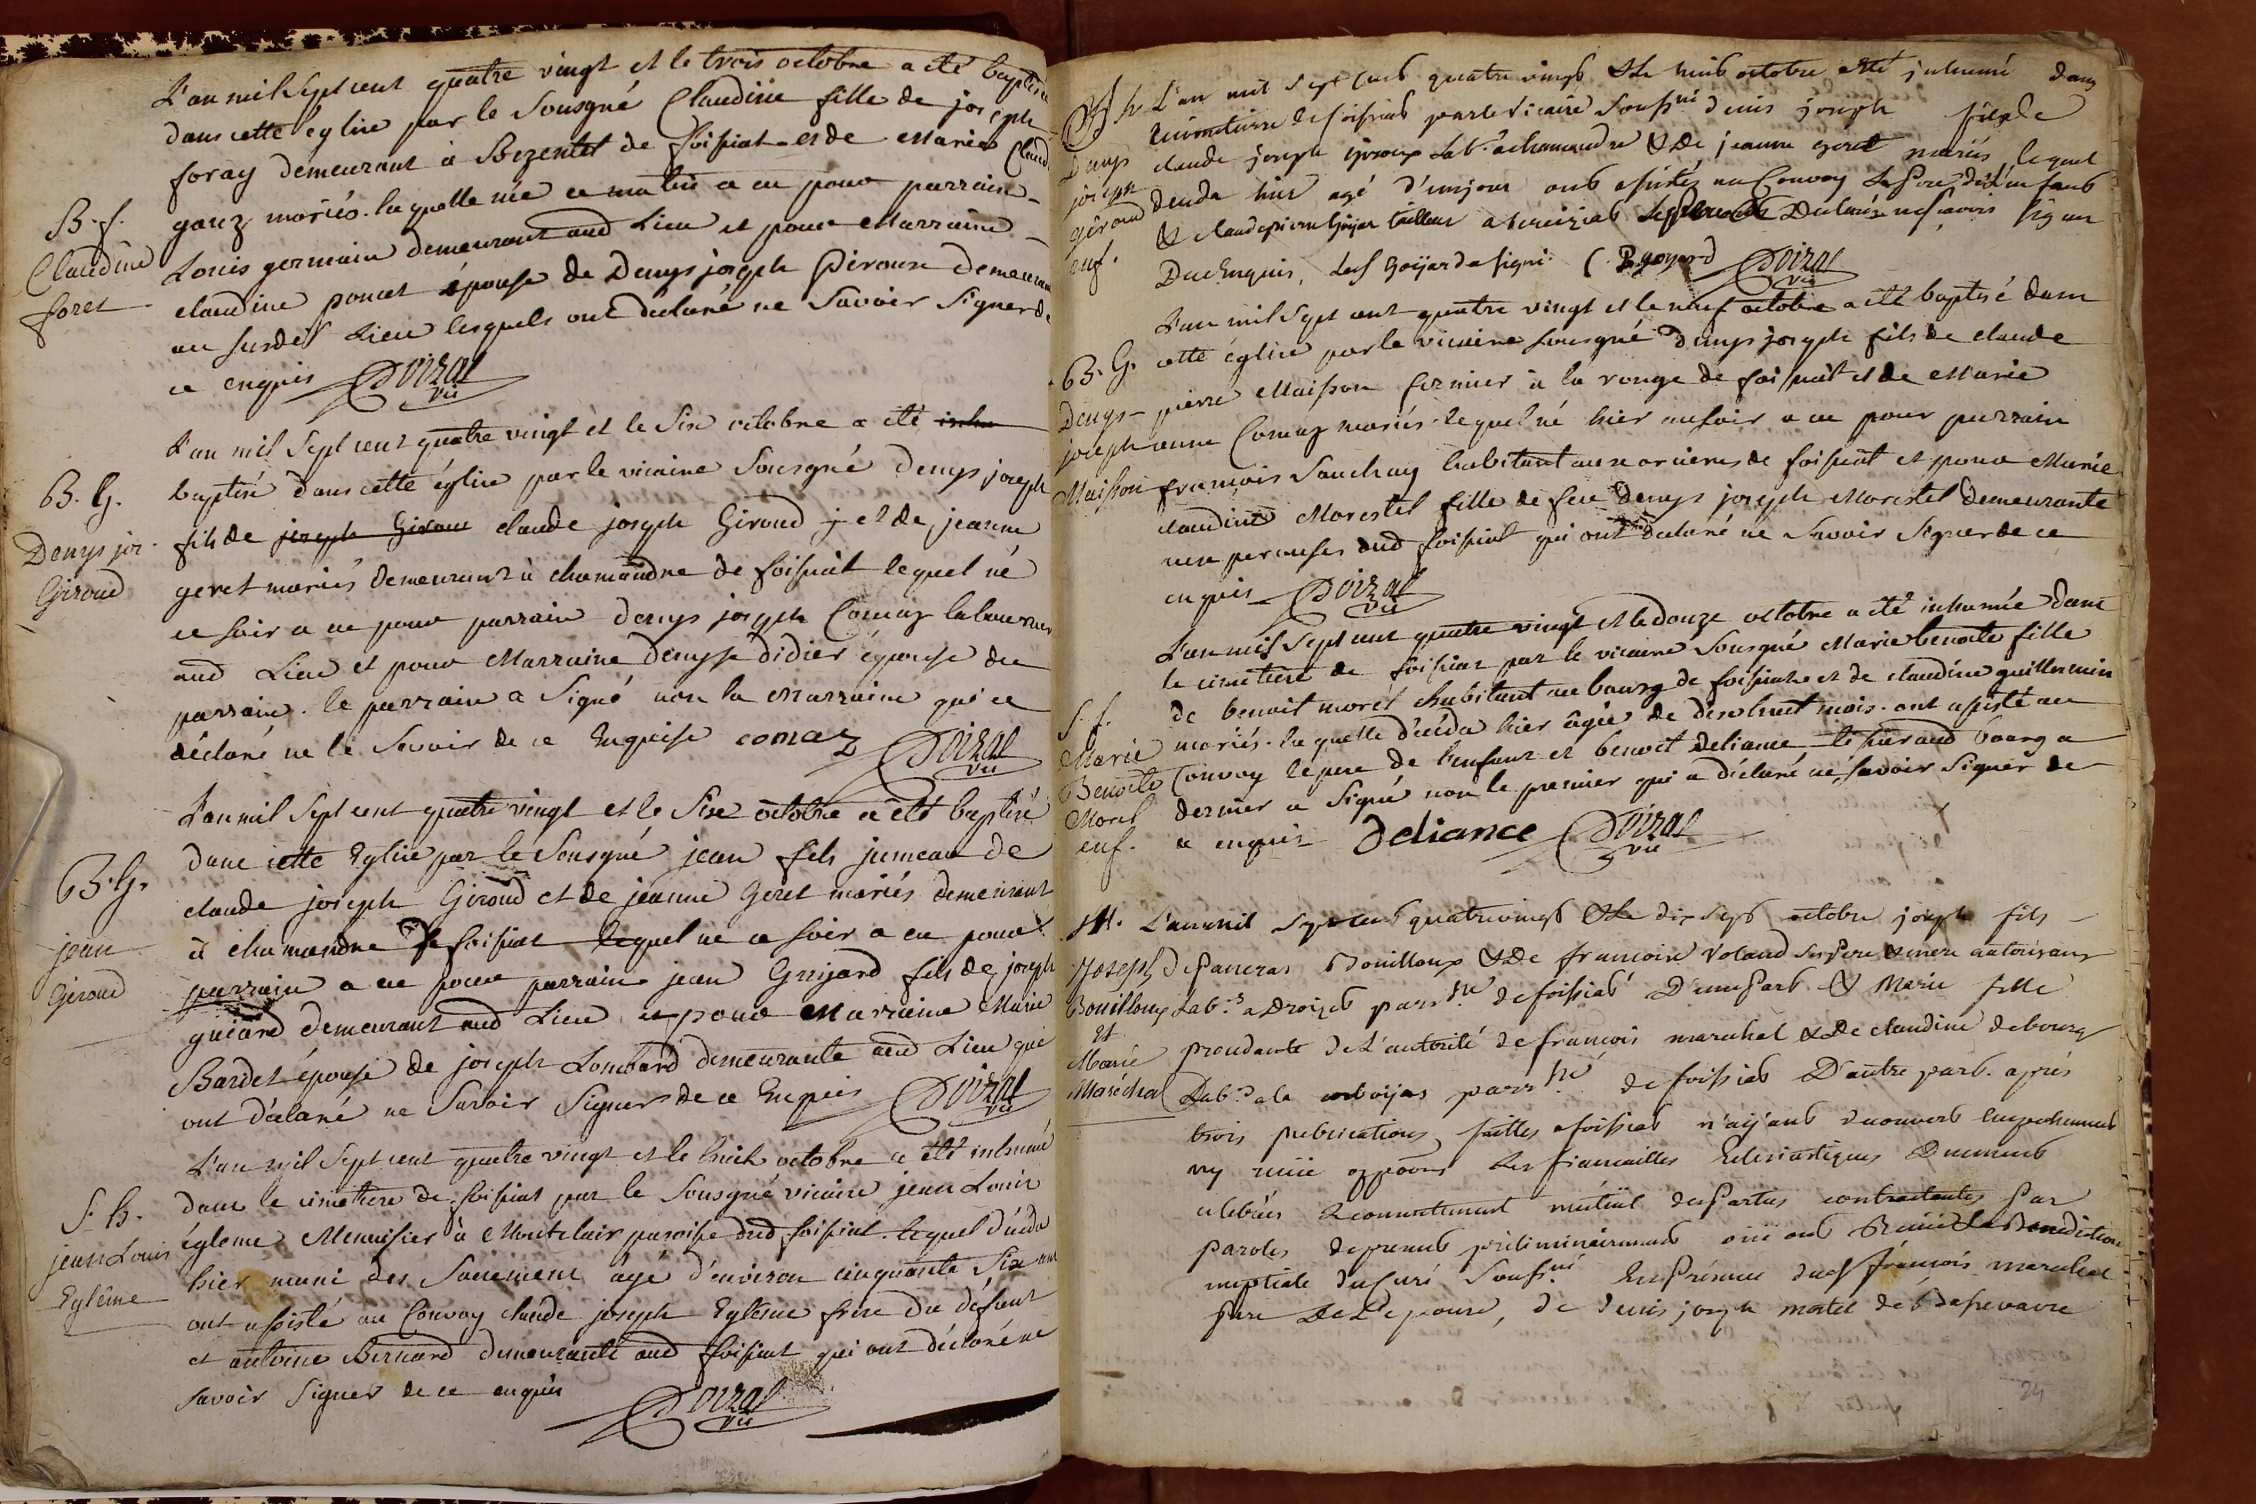 L'an mil sept cent quatre vingt et le trois octobre a eté baptisée
dans cette eglise par le Sousigné Claudine fille de joseph
foray demeurant à Bezentet de foissiat et de Marie Claud
gauz mariés. laquelle née ce matin a eu pour parrain
B. f.
Claudine
foret
Louis germain demeurant aud Lieu et pour Marraine
claudine poncet épouse de Denys joseph Piroux demeurant
au susdit Lieu lesquels ont déclaré ne Savoir Signer de
ce enquis Doizat vic
L'an mil Sept cent quatre vingt et le Six octobre a eté inhu
B. G.
Denys jos.
Giroud
baptisé dans cette église par le vicaire Sousigné Denys joseph
fils de joseph Giroux claude joseph Giroud et de jeanne
geret mariés demeurant à chamandre de foissiat lequel né
ce soir a eu pour parrain denys joseph Comaz laboureur
aud Lieu et pour Marraine denyse didier épouse du
parrain. le parrain a Signé non la Marraine qui a
déclaré ne le Savoir de ce Enquise comaz Doizat vic
L'an mil Sept cent quatre vingt et le Six octobre a eté baptisé
B. G.
jean
Giroud
dans cette Eglise par le Sousigné jean fils jumeau de
claude joseph Giroud et de jeanne Geret mariés demeurant
à chamandre de foissiat lequel né ce soir a eu pour
parrain a eu pour parrain jean Guijard fils de joseph
guiard demeurant aud Lieu et pour Marraine Marie
Bardet épouse de joseph Lombard demeurante aud Lieu qui
ont déclaré ne Savoir Signer de ce Enquis Doizat vic
L'an mil Sept cent quatre vingt et le huit octobre a eté inhumé
S. h.
jean Louis
Eglême
dans le cimetiere de foissiat par le Sousigné vicaire jean Louis
égleme Menuisier à Montclair paroisse dud foissiat. lequel décéda
hier muni des Sacrements âgé d'environ cinquante Six ans
ont assisté au Convoy claude joseph Egleme frere du défunt
et antoine Bernard demeurants aud foissiat qui ont déclaré ne
savoir Signer de ce enquis Doizat vic
S. h.
Denys
joseph
géroud
enf.
L'an mil sept cent quatre vingt & le huit octobre a été inhumé dans
le cimetiere de foissiat par le vicaire Souss.né denis joseph fils de
claude joseph giroux lab.r a chamandre & de jeanne geret mariés lequel
deceda hier agé d'un jour ont assistés au Convoy Le Pere de L'enfant
& claude pierre Goyar tailleur a Declaré ne savoir signer
Duc Enquis, Led Goyard a signé. P. goyard Doizat vic
L'an mil Sept cent quatre vingt et le neuf octobre a eté baptisé dans
B. G.
Denys
joseph
Maisson
cette église par le vicaire Sousigné denys joseph fils de claude
pierre Maisson fermier à la rouge de foissiat et de Marie
anne Comaz mariés. lequel né hier au soir a eu pour parrain
francois Sauchay habitant aux ornieres de foissiat et pour Marie
claudine Morestel fille de feu denys joseph Morestel demeurante
aux perouses dud foissiat qui ont déclaré ne Savoir Signer de ce
enquis Doizat vic
L'an mil Sept cent quatre vingt et le douze octobre a été inhumée dans
le cimetiere de foissiat par le vicaire Sousigné Marie benoite fille
S. f.
Marie
Benoite
Morel
enf.
de benoit morel habitant au bourg de foissiat et de claudine guillermin
mariés. laquelle décéda hier âgée de dixhuit mois. ont assisté au
Convoy le pere de l'enfant et benoit deliance aud bourg ce
dernier a Signé non le premier qui a déclaré ne savoir Signer de
ce enquis Deliance Doizat vic
M.
Joseph
Bouilloux
et
Marie
Maréchal
L'an mil Sept cent quatre vingt & le dix Sept octobre joseph fils
de Pancras Bouilloux & de francoise Voland ses Pere & mere autorisant
Lab.rs a Droizet parr.sse de foissiat D'une Part & Marie fille
procedante de L'autorité de francois marechal & de claudine debourg
Lab.rs a la parr.sse de foissiat D'autre part. aprés
trois publications faittes a foissiat n'ayant decouvert Empechement
ny reçue oppôon Les fiancailles Eclésiastiques Duement
celebrées & consentement mutuel des Parties contractantes Par
Paroles de present préliminairement oui ont Recüe La Benediction
nuptiale du Curé Souss.né En Présence dud francois marechal
Pere De L'epouse, de denis joseph matel de
24